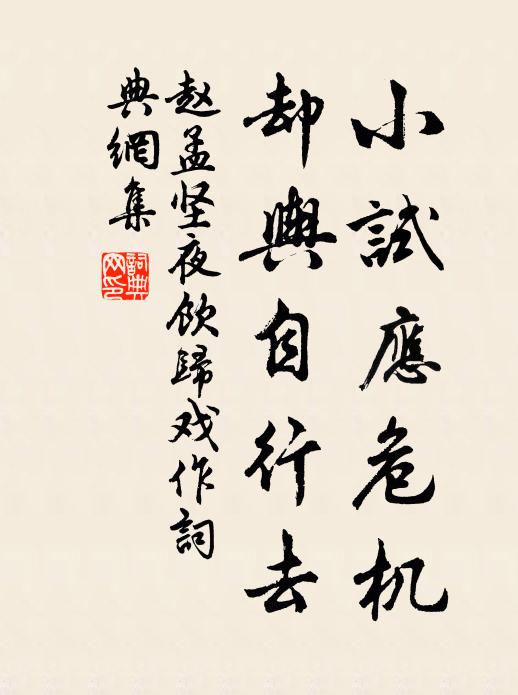 小試應危机
却輿自行去
赵孟坚夜飲歸戏作詞
典網集
詞典网印